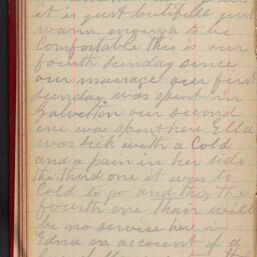 it is just butifull just
warm enough to be
Comfortable this is our
fourth Sunday since
our marriage our first
Sunday was spent in
Galveston our second
one was spent here Ella
was sick with a Cold
and a pain in her side
the third one it was to
Cold to go and this the
fourth one thair will
be no servise here in
Edna on account of a